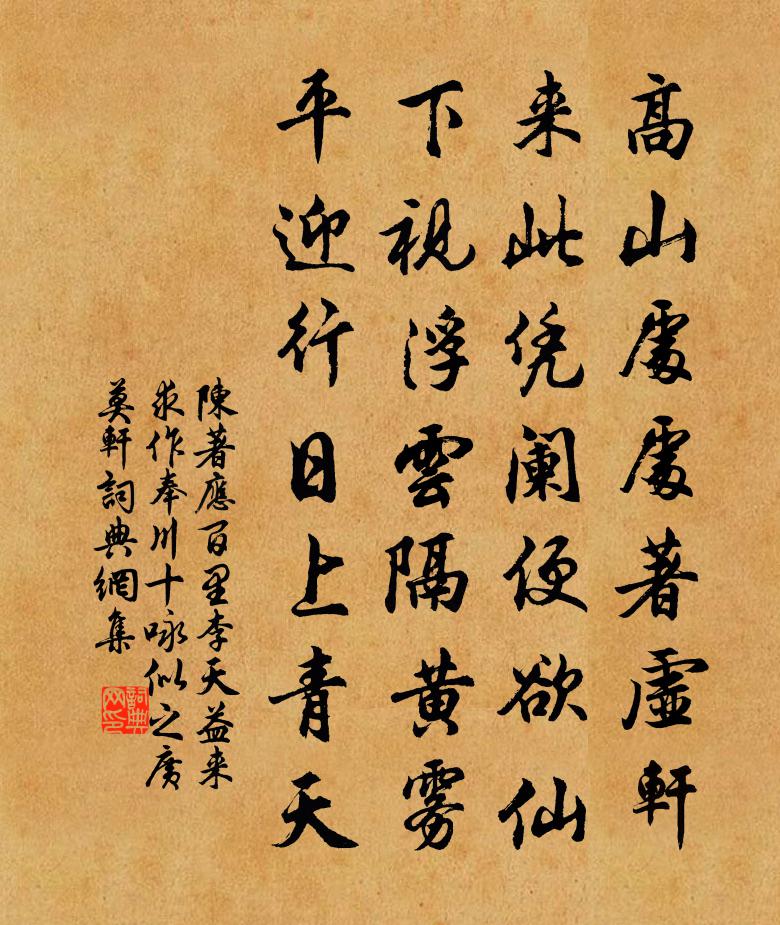 高山處處著虛軒
来此凭阑便欲仙
下視浮雲隔黄雾
平迎行日上青天
陳著應百里李天益来
求作奉川十咏似之廣
莫軒詞典網集
詞典网印